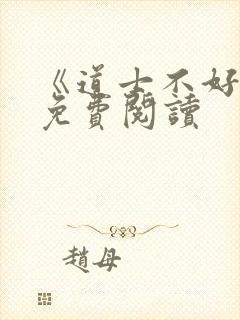 《道士不好
免費閱讀
趙母